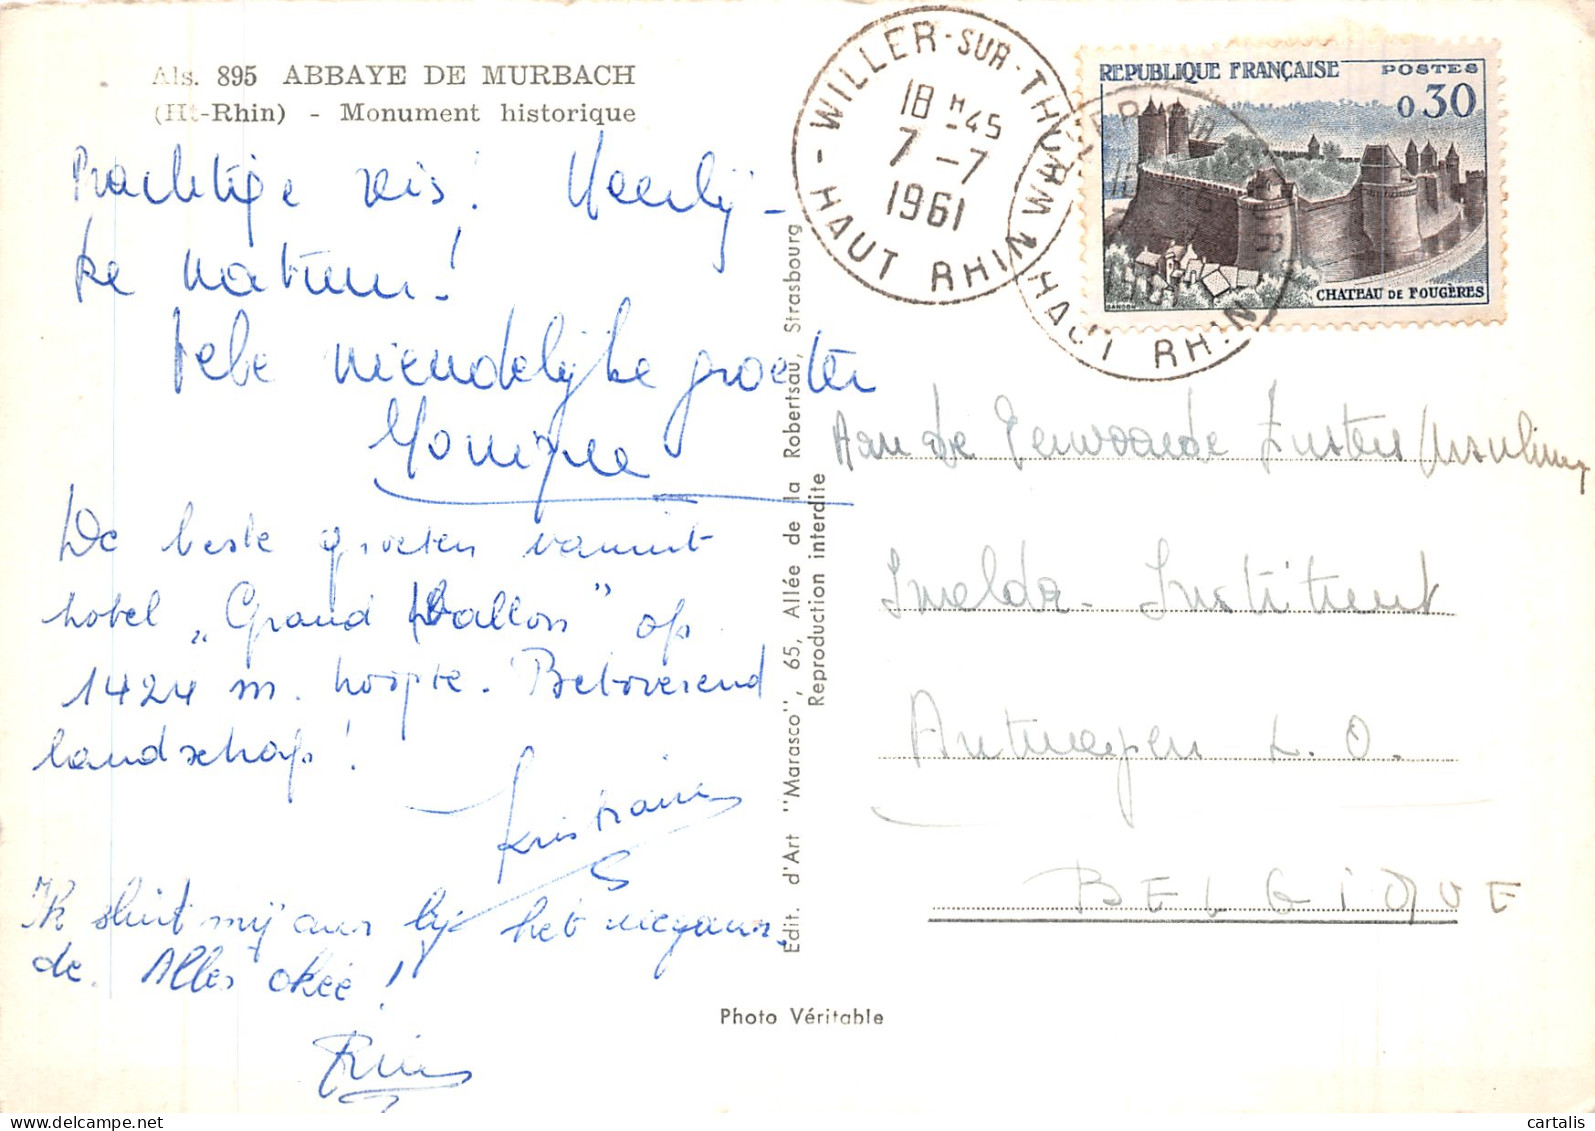 Als. 895 ABBAYE DE MURBACH
(Ht-Rhin) - Monument historique
Prachtige reis! Heerlij-
ke natuur!
Vele vriendelijke groeten
Monique
De beste groeten vanuit
hotel "Grand Ballon" op
1424 m. hoogte. Betoverend
landschap!
Ik sluit mij aan bij het voorgaan-
de. Alles okee!
Edit. d'Art "Marasco", 65, Allée de la Robertsau, Strasbourg
Reproduction interdite
Photo Véritable
WILLER-SUR-THUR
18 H 45
7 -7
1961
HAUT RHIN
REPUBLIQUE FRANÇAISE POSTES
0,30
CHATEAU DE FOUGÈRES
HAUT RHIN
Aan de Eerwaarde Zusters Ursulinen
Imelda- Instituut
Antwerpen L.O.
BELGIQUE
cartalis
delcampe.net